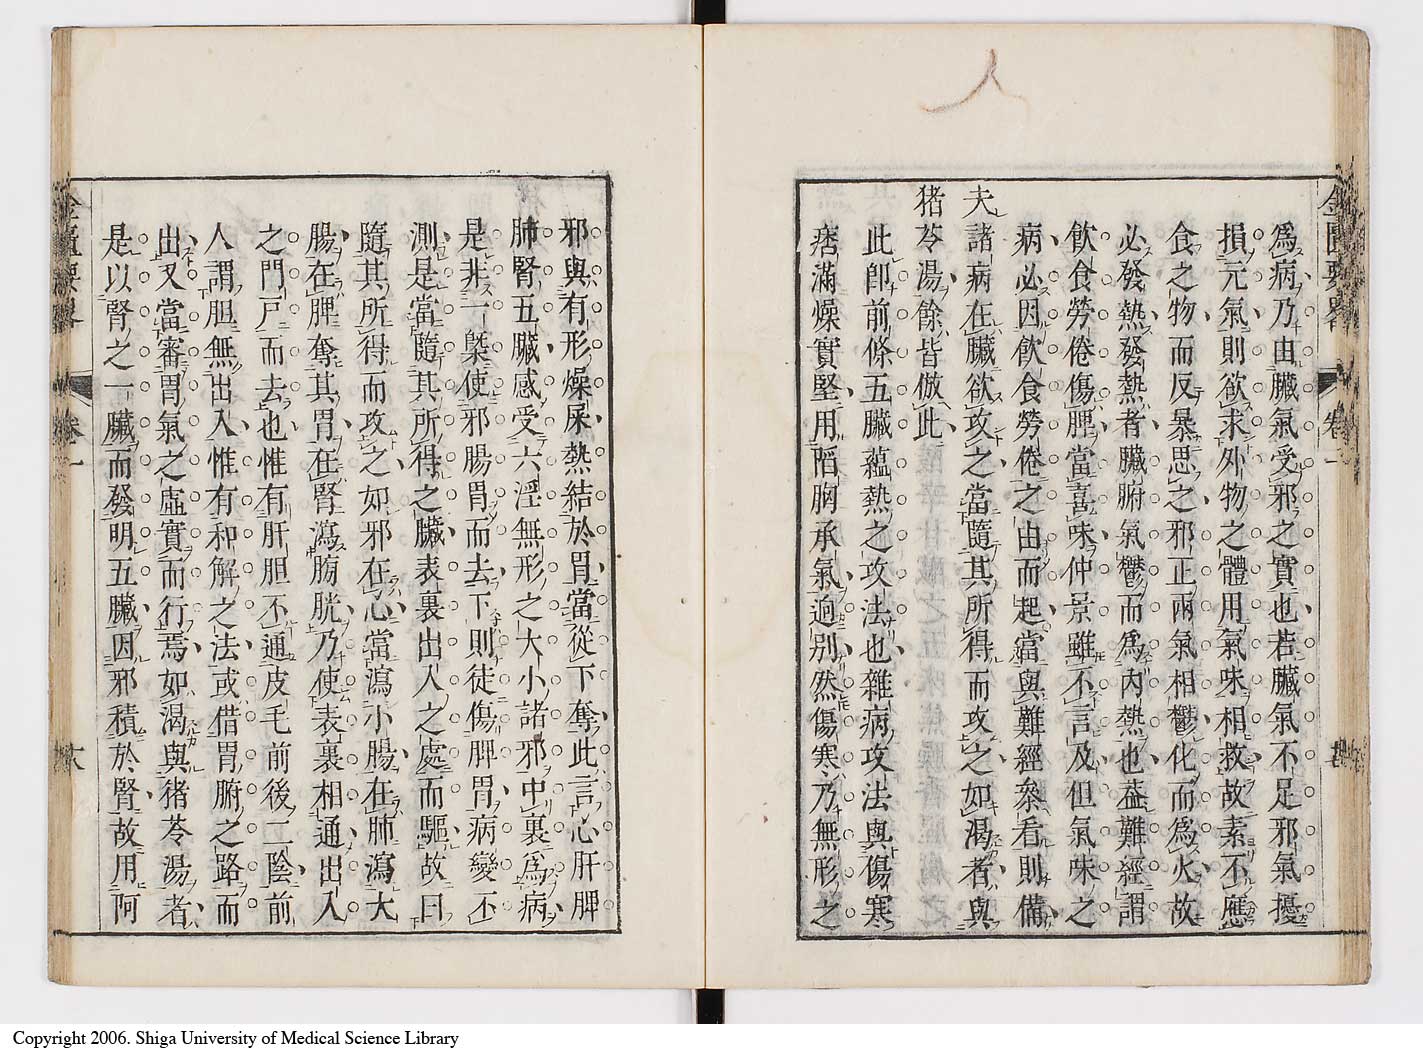 爲病乃由臟氣受邪之實也若臟氣不足邪氣擾
損元氣則欲求外物之體用氣味相救故素不應
食之物而反暴思之邪正兩氣相鬱化而爲火故
必發熱發熱者臟腑氣鬱而爲內熱也葢難經謂
飲食勞倦傷脾當喜味仲景雖不言及但氣味之
病必因飲食勞倦之由而起當與難經叅看則備
夫諸病在臟欲攻之當隨其所得而攻之如渴者與
猪苓湯餘皆倣此
此卽前條五臟蘊熱之攻法也雜病攻法與傷寒
痞滿燥實堅用陷胸承氣逈别然傷寒乃無形之
金匱要畧
卷一
邪與有形燥屎熱結於胃當從下奪此言心肝脾
肺腎五臟感受六淫無形之大小諸邪中裏爲病
是非一槩使邪腸胃而去下則徒傷脾胃病變不
測是當隨其所得之臟表裏出入之處而驅故曰
隨其所得而攻之如邪在心當瀉小腸在肺瀉大
腸在脾奪其胃在腎瀉膀胱乃使表裏相通出入
之門戸而去也惟有肝胆不通皮毛前後二陰前
人謂胆無出入惟有和解之法或借胃腑之路而
出又當審胃氣之虛實而行焉如渴與猪苓湯者
是以腎之一臟而發明五臟因邪積於腎故用阿
金匱要畧
卷一
十六
Copyright 2006. Shiga University of Medical Science Library